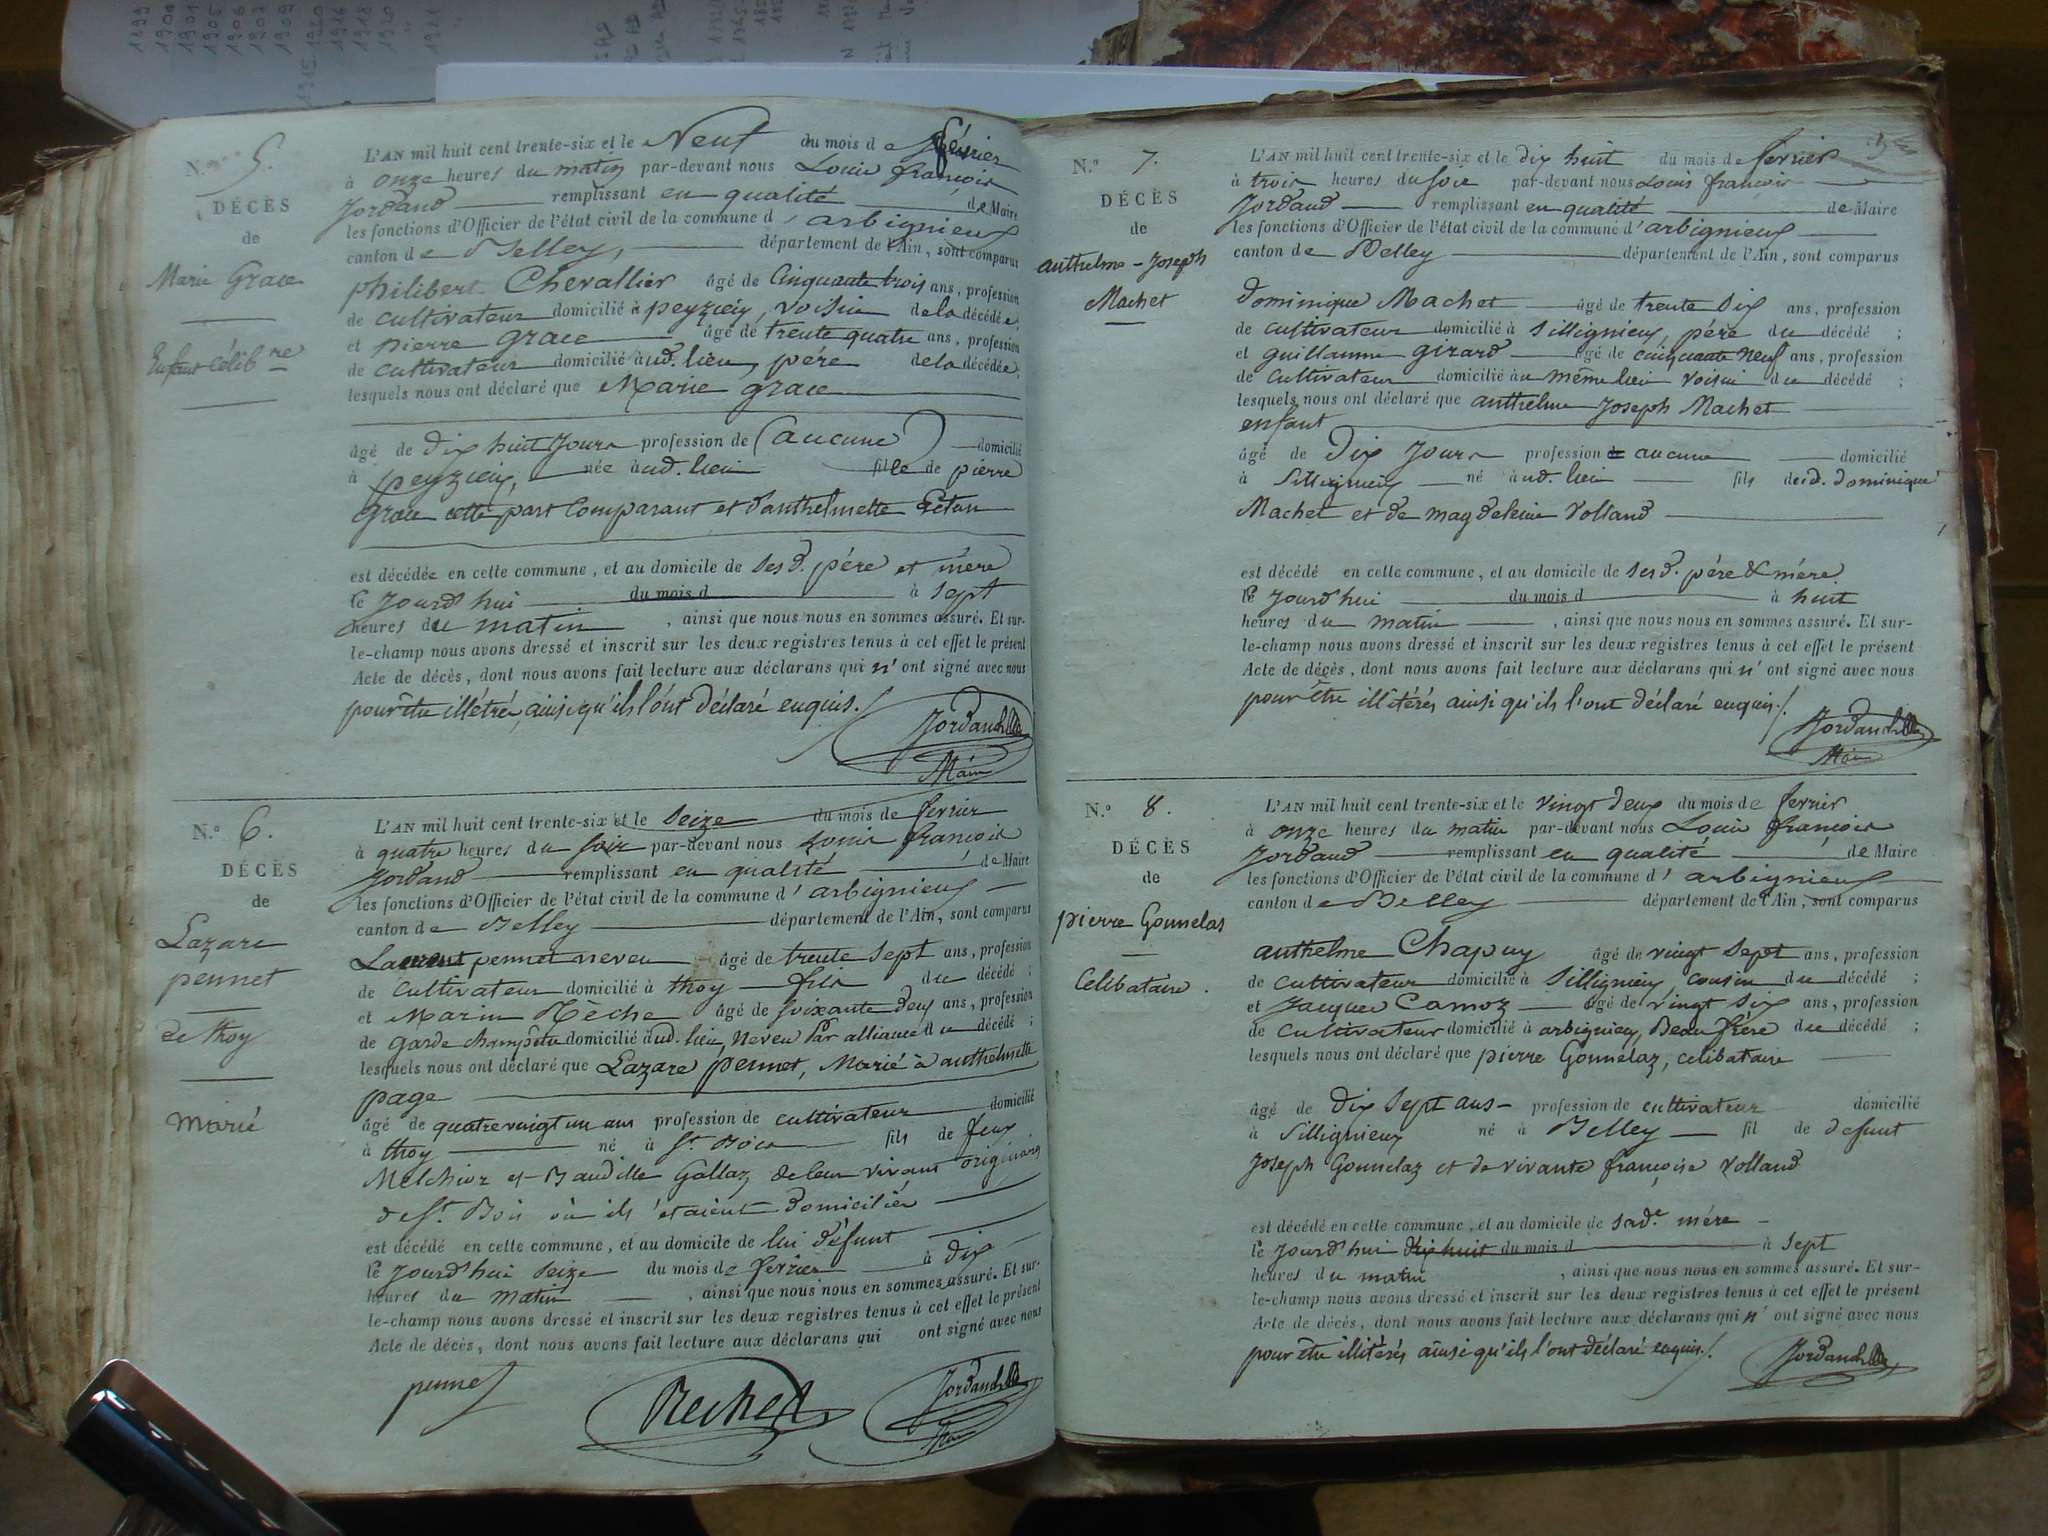 N.o 5.
DÉCÈS
de
Marie Grace
Enfant Célib.re
L'AN mil huit cent trente-six et le Neuf du mois de février
à onze heures du matin par-devant nous Louis françois
Jordand remplissant en qualité de Maire
les fonctions d'Officier de l'état civil de la commune d'arbignieux
canton de Belley, département de l'Ain, sont comparus
philibert Chevallier âgé de Cinquante trois ans, profession
de cultivateur domicilié à peyzieu, voisin de la décédée;
et pierre grace âgé de trente quatre ans, profession
de cultivateur domicilié aud. lieu, père de la décédée;
lesquels nous ont déclaré que Marie grace
âgé de dix huit Jours profession de (aucune) domicilié
à peyzieu, née aud. lieu fille de pierre
grace cette part Comparant et d'anthelmette
est décédée en cette commune, et au domicile de sesd. père et mère
le Jourd'hui du mois d à sept
heures du matin, ainsi que nous nous en sommes assuré. Et sur-
le-champ nous avons dressé et inscrit sur les deux registres tenus à cet effet le présent
Acte de décès, dont nous avons fait lecture aux déclarans qui n'ont signé avec nous
pour être illétrés, ainsi qu'ils l'ont déclaré enquis./.
Jordand
Maire
N.o 6.
DÉCÈS
de
Lazare
pennet
de thoy
Marié
L'AN mil huit cent trente-six et le Seize du mois de fevrier
à quatre heures du soir par-devant nous Louis françois
Jordand remplissant en qualité de Maire
les fonctions d'Officier de l'état civil de la commune d'arbignieux
canton de Belley département de l'Ain, sont comparus
Laurent pennet neveu âgé de trente sept ans, profession
de cultivateur domicilié à thoy fils du décédé;
et Marin Rèche âgé de soixante deux ans, profession
de garde champêtre domicilié aud. lieu, Neveu par alliance du décédé;
lesquels nous ont déclaré que Lazare pennet, Marié à anthelmette
page
âgé de quatrevingt un ans profession de cultivateur domicilié
à thoy né à St. Bois fils de feux
Melchior et Baudille Gallaz de leur vivant originaires
de St. Bois où ils étaient domiciliés
est décédé en cette commune, et au domicile de lui défunt
le Jourd'hui seize du mois de fevrier à dix
heures du matin, ainsi que nous nous en sommes assuré. Et sur-
le-champ nous avons dressé et inscrit sur les deux registres tenus à cet effet le présent
Acte de décès, dont nous avons fait lecture aux déclarans qui ont signé avec nous
pennet
Jordand
Maire
N.o 7.
DÉCÈS
de
anthelme-Joseph
Machet
L'AN mil huit cent trente-six et le dix huit du mois de fevrier
à trois heures du soir par-devant nous Louis françois
Jordand remplissant en qualité de Maire
les fonctions d'Officier de l'état civil de la commune d'arbignieux
canton de Belley département de l'Ain, sont comparus
dominique Machet âgé de trente dix ans, profession
de cultivateur domicilié à Sillignieux, père du décédé;
et guillaume girard âgé de cinquante neuf ans, profession
de cultivateur domicilié au même lieu voisin du décédé;
lesquels nous ont déclaré que anthelme Joseph Machet
enfant
âgé de dix Jours profession de aucune domicilié
à Sillignieux né aud. lieu fils dud. dominique
Machet et de magdeleine Volland
est décédé en cette commune, et au domicile de sesd. père & mère
le Jourd'hui du mois d à huit
heures du matin, ainsi que nous nous en sommes assuré. Et sur-
le-champ nous avons dressé et inscrit sur les deux registres tenus à cet effet le présent
Acte de décès, dont nous avons fait lecture aux déclarans qui n'ont signé avec nous
pour être illitérés ainsi qu'ils l'ont déclaré enquis./.
Jordand
Maire
N.o 8.
DÉCÈS
de
pierre Gounelas
Celibataire.
L'AN mil huit cent trente-six et le vingt deux du mois de fevrier
à onze heures du matin par-devant nous Louis françois
Jordand remplissant en qualité de Maire
les fonctions d'Officier de l'état civil de la commune d'arbignieux
canton de Belley département de l'Ain, sont comparus
anthelme Chapuy âgé de vingt sept ans, profession
de cultivateur domicilié à Sillignieux, cousin du décédé;
et Jacques Camoz âgé de vingt six ans, profession
de cultivateur domicilié à arbignieu, Beau frère du décédé;
lesquels nous ont déclaré que pierre Gounelaz, celibataire
âgé de dix sept ans profession de cultivateur domicilié
à Sillignieux né à Belley fil de defunt
Joseph Gounelaz et de vivante françoise Volland
est décédé en cette commune, et au domicile de sad.e mère
le Jourd'hui dix huit du mois d à sept
heures du matin, ainsi que nous nous en sommes assuré. Et sur-
le-champ nous avons dressé et inscrit sur les deux registres tenus à cet effet le présent
Acte de décès, dont nous avons fait lecture aux déclarans qui n'ont signé avec nous
pour être illitérés ainsi qu'ils l'ont déclaré enquis./.
Jordand